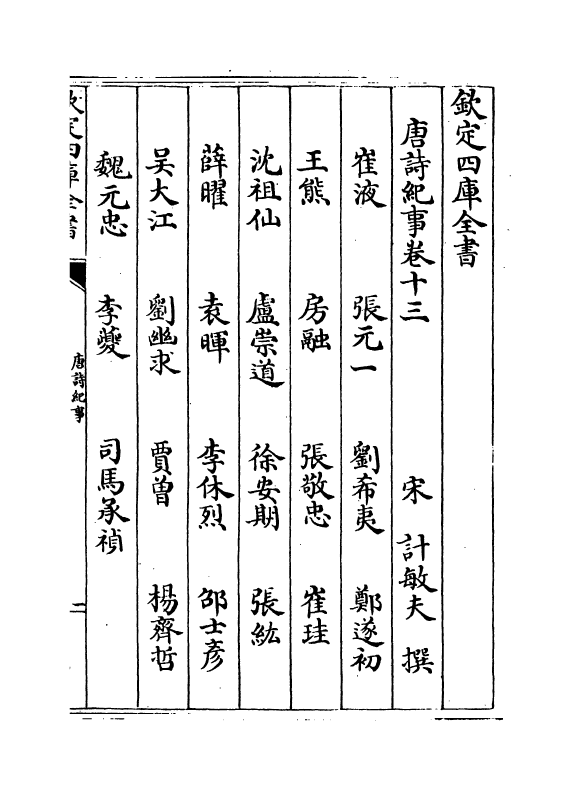 欽定四庫全書
唐詩紀事卷十三
宋 計敏夫 撰
崔液 張元一 劉希夷 鄭遂初
王熊 房融 張敬忠 崔珪
沈祖仙 盧崇道 徐安期 張紘
薛曜 袁暉 李休烈 邵士彥
吴大江 劉幽求 賈曾 楊齊哲
魏元忠 李夔 司馬承禎
欽定四庫全書
唐詩紀事